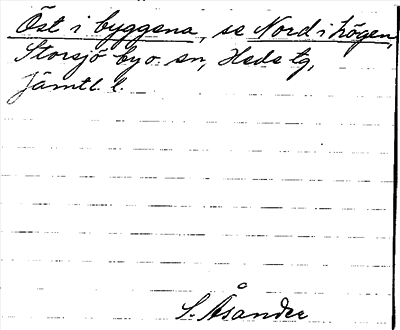 Öst i byggena, se Nord i högen,
Storsjö by o. sn, Heds tg,
Jämtl. l.
S. Åsander